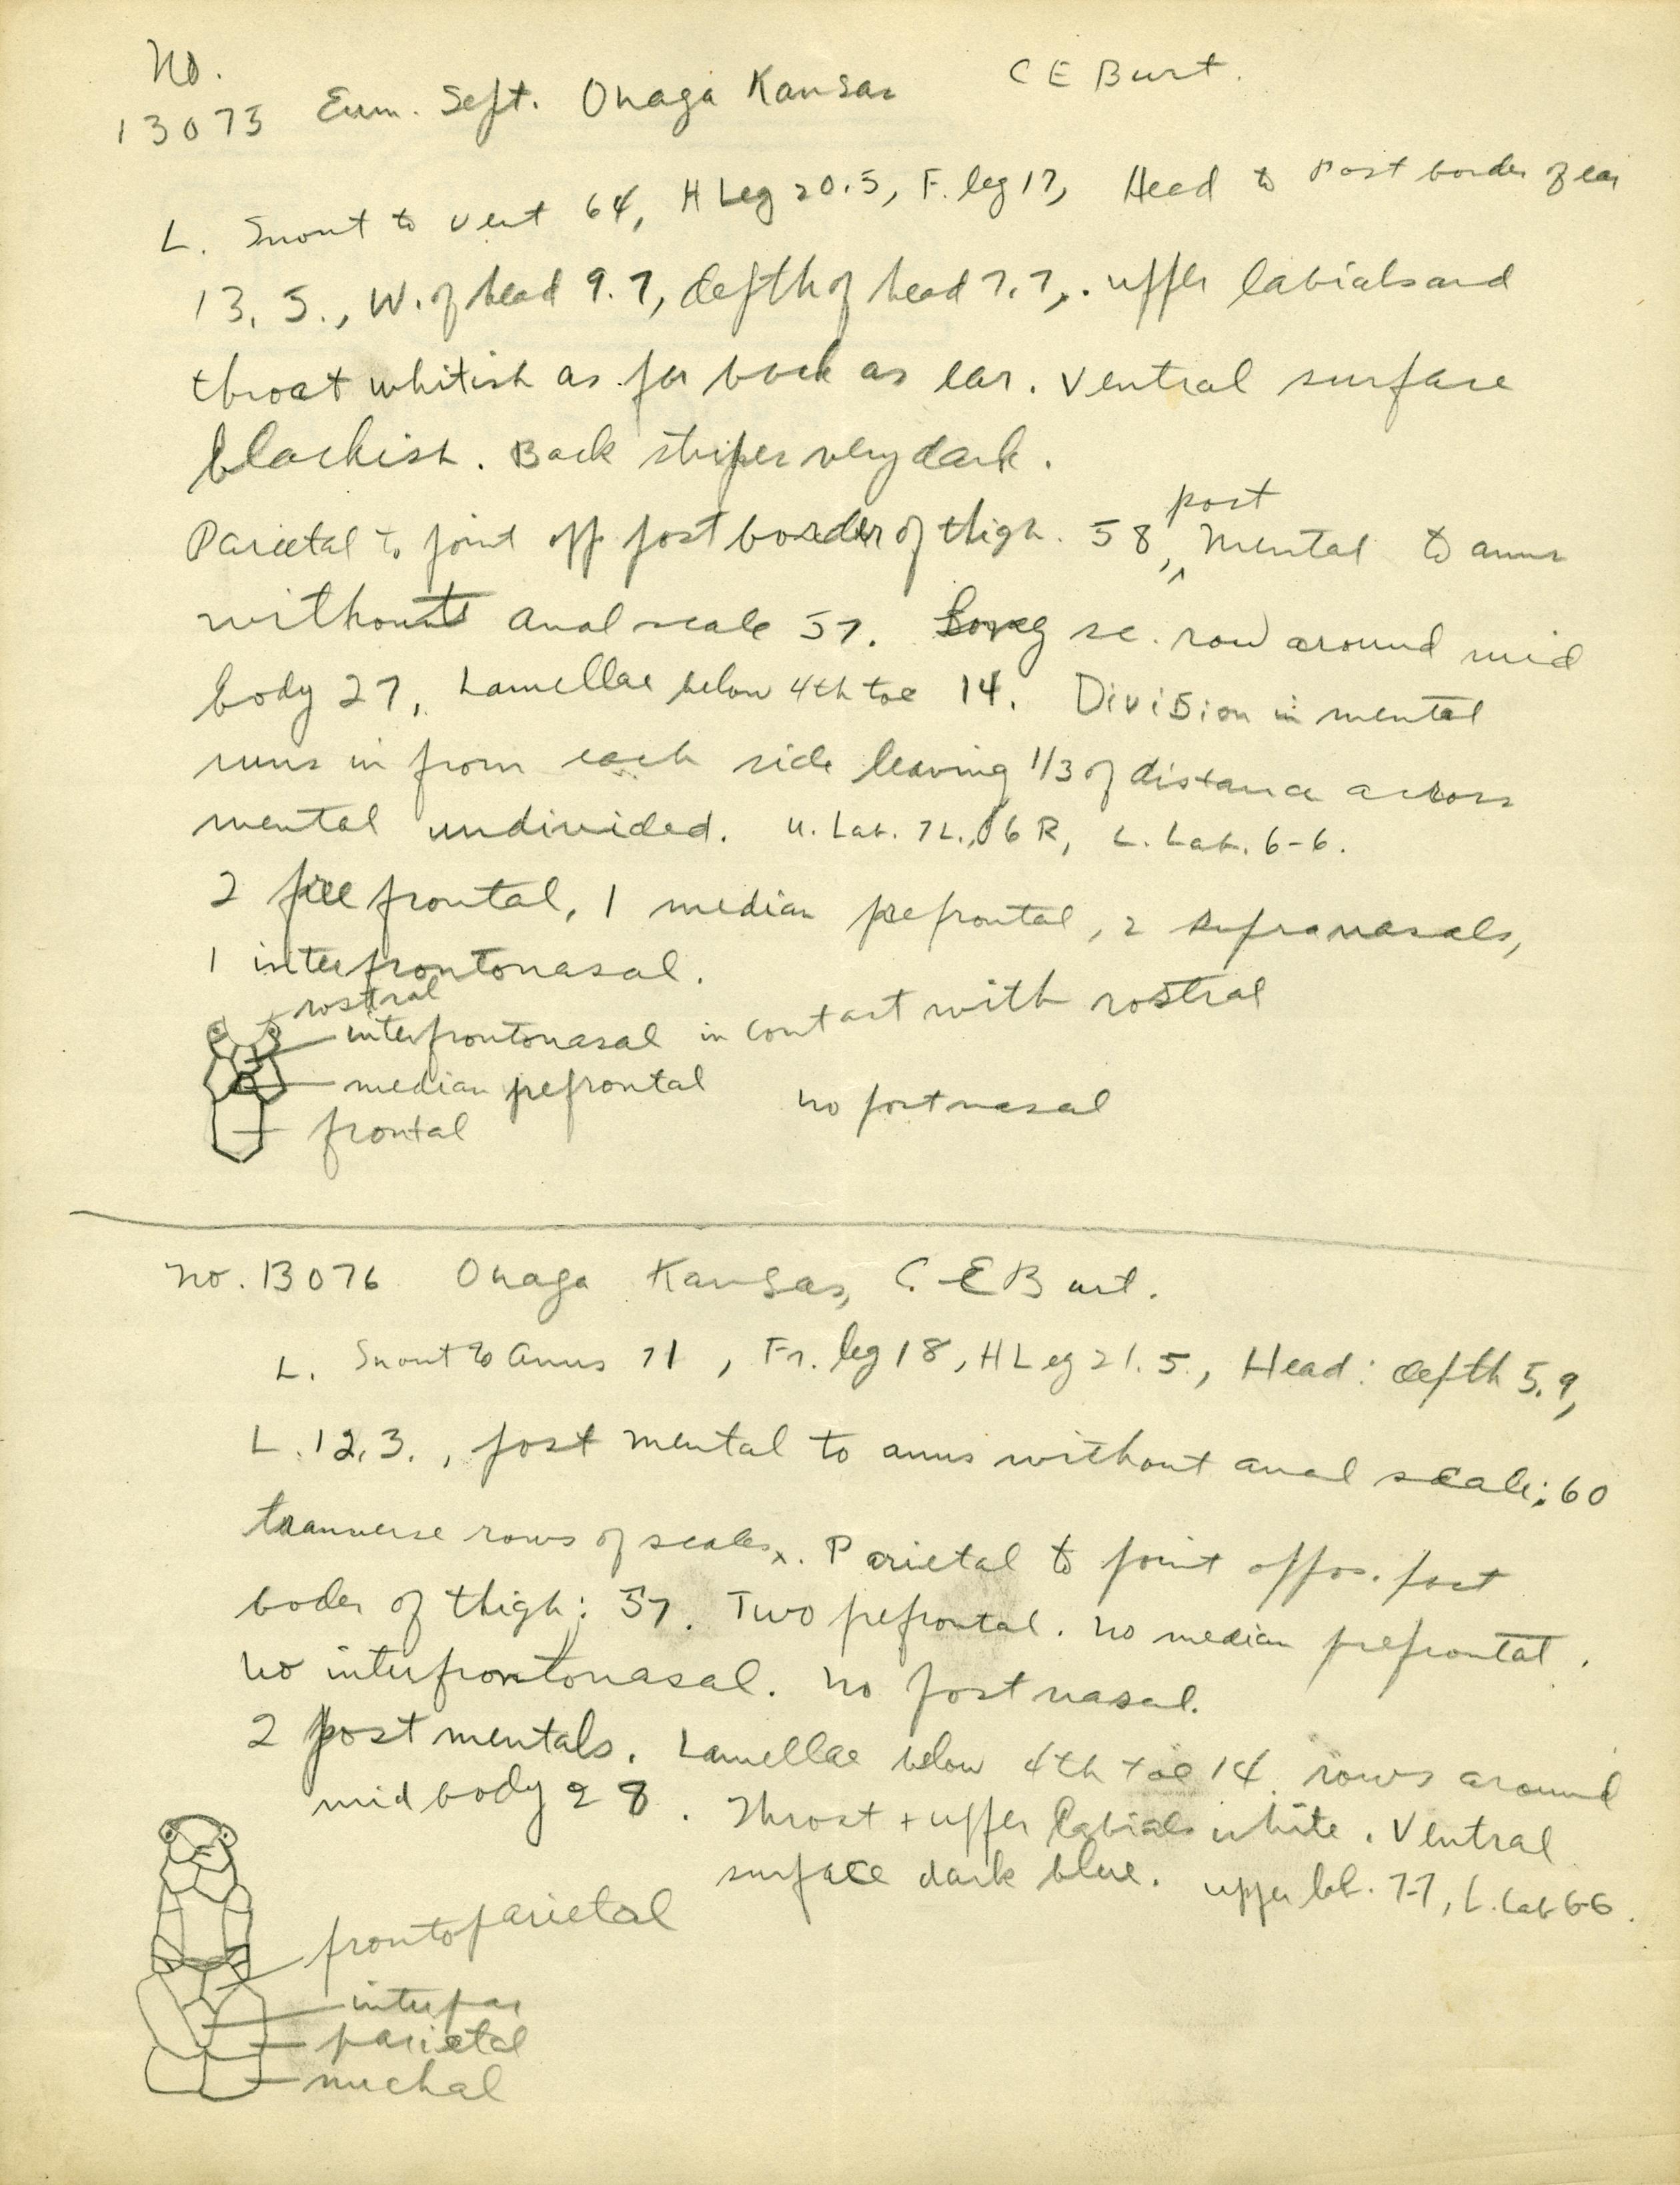 No.
13073 Eum. Sept. Onaga Kansas C E Burt.
L. Snout to vent 64, H Leg 20.5, F. leg 17, Head to Post border of ear
13.5., W. of head 9.7, depth of head 7.7,. upper labials and
throat whitish as far back as ear. Ventral surface
blackish. Back stripes very dark.
post
Parietal to point opp. post border of thigh. 58, ^ Mental to anus
without anal scale 57. sc. row around mid
body 27, Lamellae below 4th toe 14. Division in mental
runs in from each side leaving 1/3 of distance across
mental undivided. U. Lab. 7L., 6 R, L. Lab. 6-6.
2 prefrontal, 1 median prefrontal, 2 supranasals,
1 interfrontonasal.
rostral
interfrontonasal in contact with rostral
median prefrontal
no postnasal
frontal
No. 13076 Onaga Kansas, C. E Burt.
L. Snout to Anus 71, Fr. leg 18, H Leg 21.5., Head: depth 5.9,
L. 12.3., post mental to anus without anal scale; 60
transverse rows of scales. Parietal to point oppos. post
boder of thigh: 57. Two prefrontal. no median prefrontal.
No interfrontonasal. No postnasal.
2 post mentals. Lamellae below 4th toe 14. rows around
mid body 28. Throat + upper labials white. Ventral
surface dark blue. upper lab. 7-7, L. Lab 6-6.
frontoparietal
interpar
parietal
nuchal